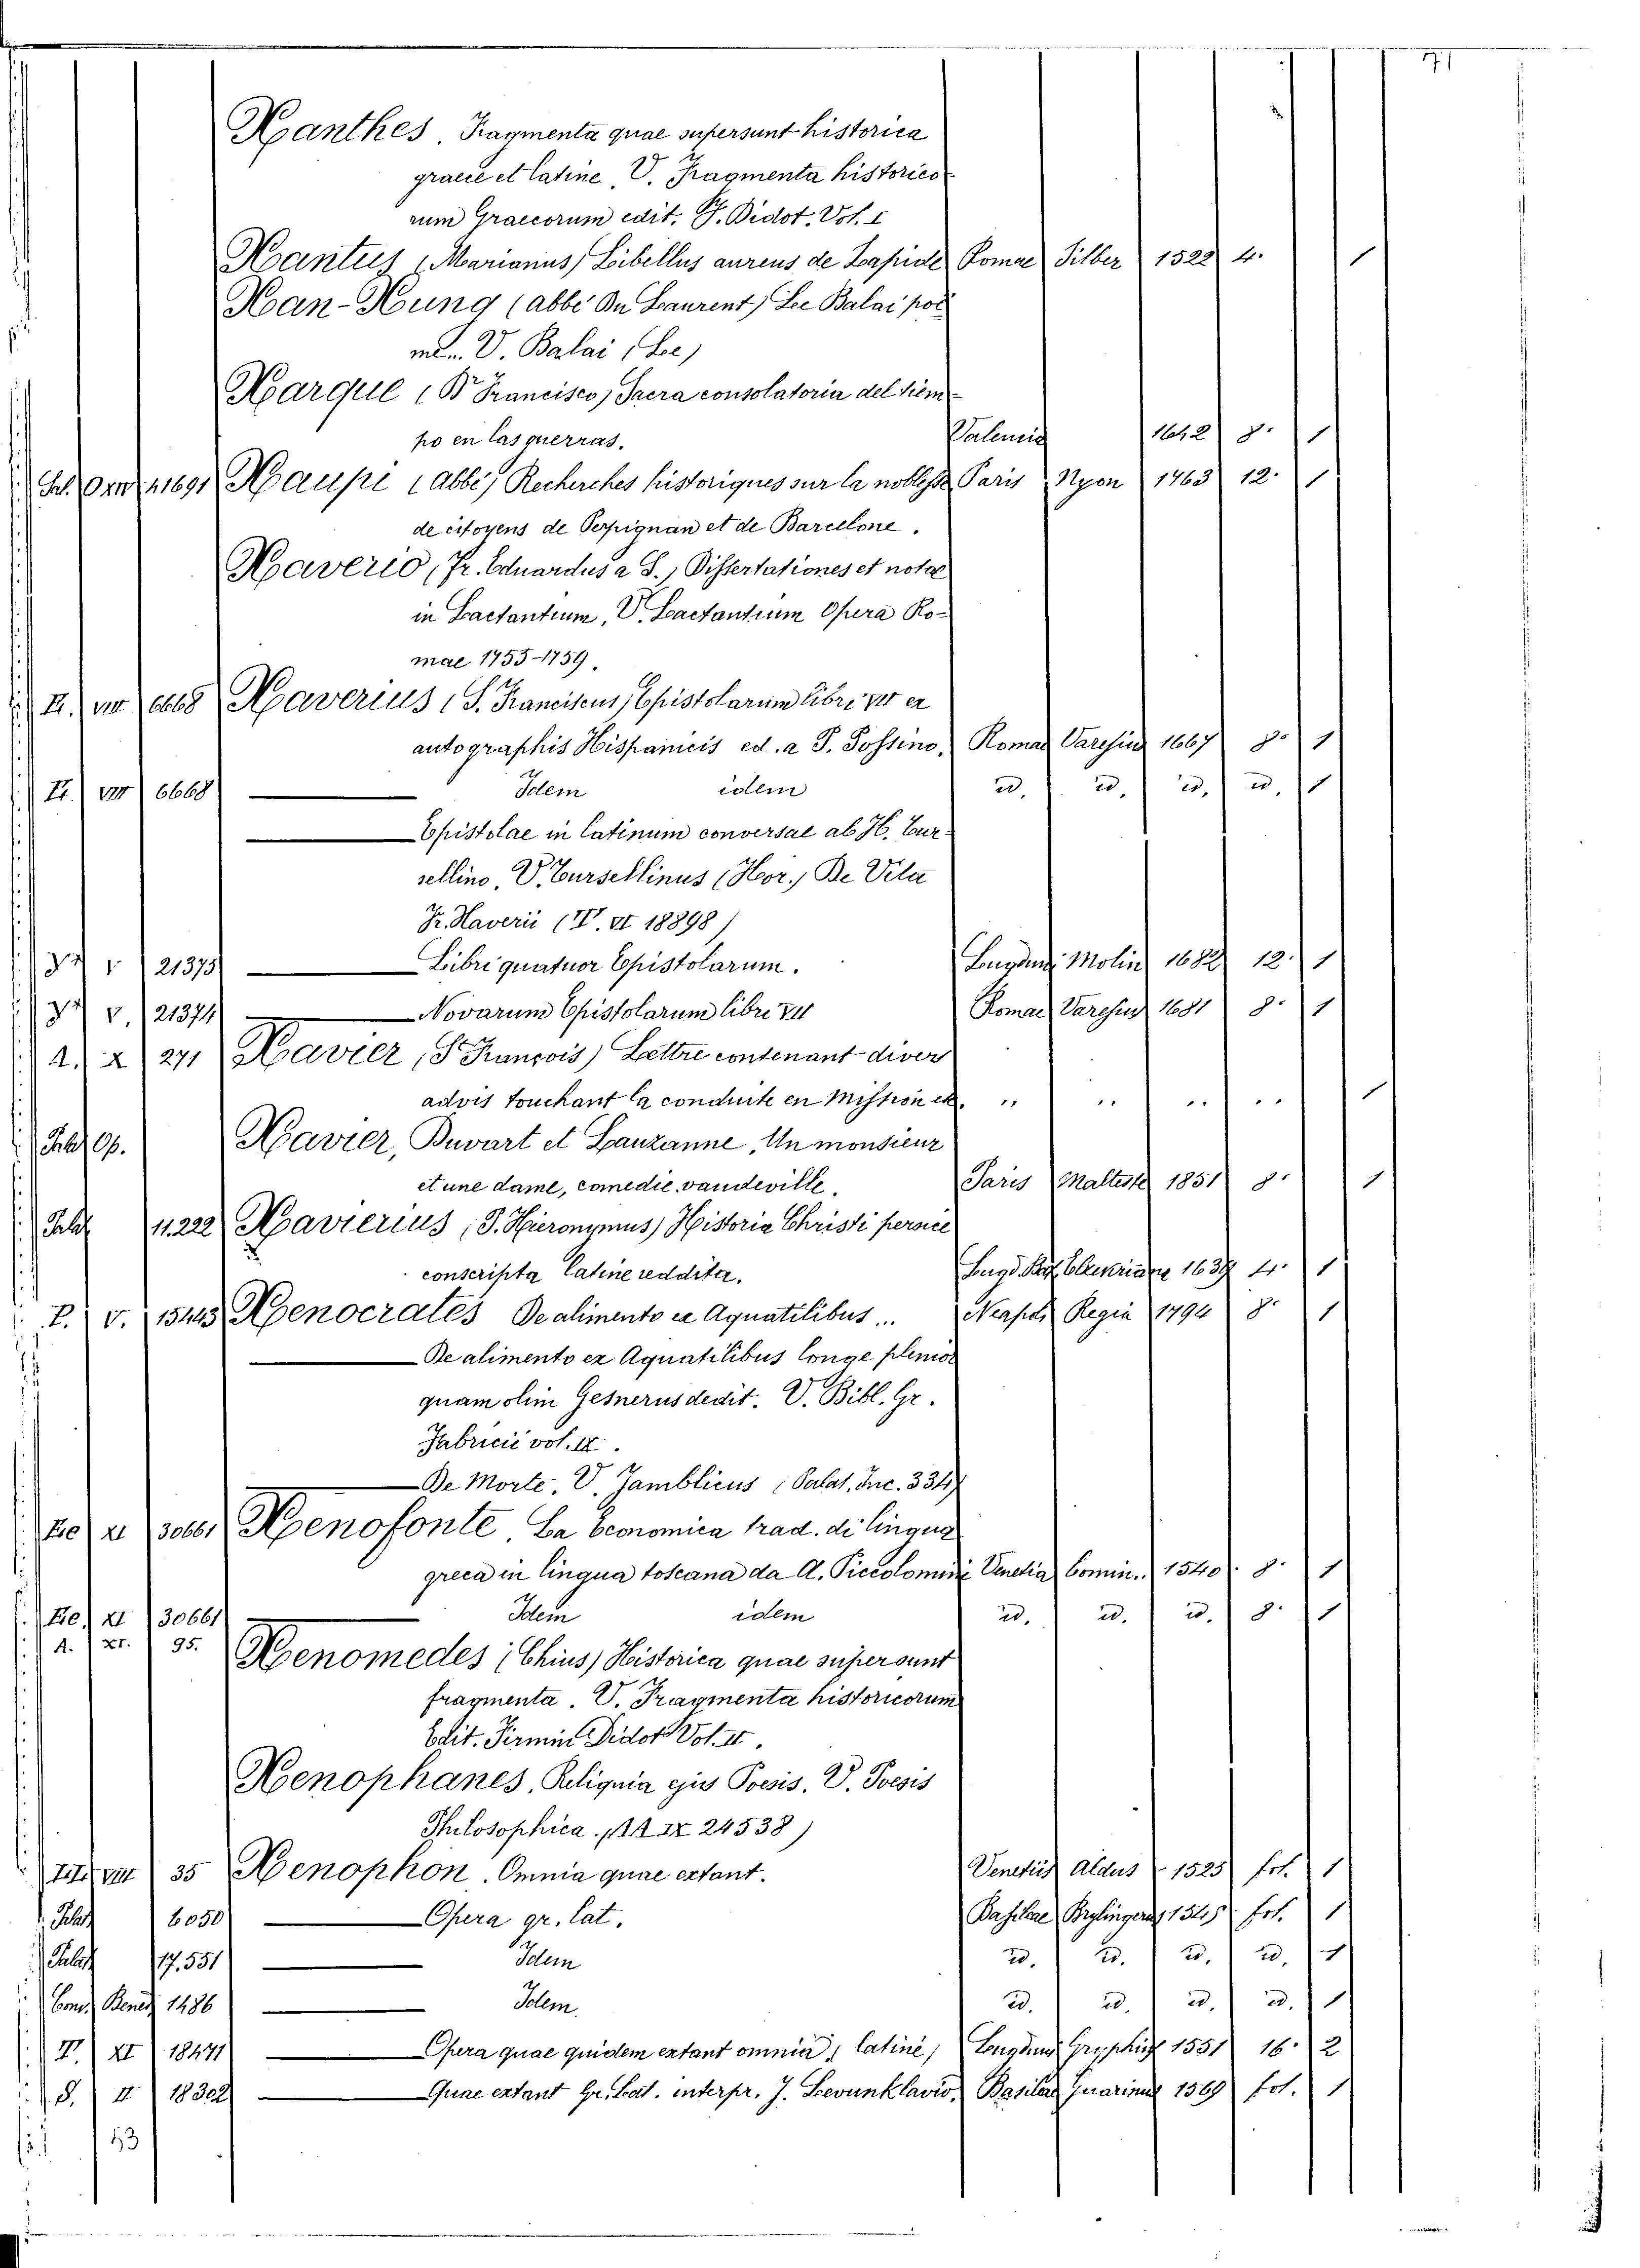 71
Xanthes. Fragmenta quae supersunt historica
graece et latine, V. Fragmenta historico-
rum Graecorum edit. F. Didot. Vol. I
Xantus (Marianus) Libellus aureus de Lapide Romae Silber 1522 4. 1
Xan-Xung (abbé Du Laurent) Le Balai poë
me. V. Balai (Le)
Xarque (Dr Francisco) Sacra consolatoria del tiem-
po en las guerras. Valencia 1642 8. 1
21691 Xaupi (abbé) Recherches historiques sur la noblesse Paris Nyon 1763 12. 1
de citoyens de Perpignan et de Barcelone.
Xaverio (Fr. Eduardus a S.) Dissertationes et notae
in Lactantium, V. Lactantium Opera Ro-
mae 1755-1759.
II. VIII 6668 Xaverius (S. Franciscus) Epistolarum libri VII ex
autographis Hispanicis ed. a P. Possino. Romae Varesius 1667 8. 1
II. VIII 6668 Idem idem id. id. id. id. 1
Epistolae in latinum conversae ab H. Tur-
sellino, V. Tursellinus (Hor.) De Vita
Fr. Xaverii (T. VI 18898)
V 21373 Libri quatuor Epistolarum. Lugduni Molin 1682 12. 1
V. 21374 Novarum Epistolarum libri VII Romae Varesius 1681 8. 1
A. X 271 Xavier (St François) Lettre contenant diver
advis touchant la conduite en Mission etc. " " " " 1
Palat Op. Xavier, Duvart et Lauzanne, Un monsieur
et une dame, comedie vaudeville. Paris Malteste 1851 8. 1
Palat 11.222 Xavierius (P. Hieronymus) Historia Christi persice
conscripta latine reddita. Lugd. Bat. Elzeviriana 1639 4. 1
P. V. 15443 Xenocrates De alimento ex Aquatilibus... Neapoli Regia 1794 8. 1
De alimento ex Aquatilibus longe plenior
quam olim Gesnerus dedit. V. Bibl. Gr.
Fabricii vol. IX.
De Morte. V. Jamblicus (Palat. Inc. 334)
XI 30661 Xenofonte. La Economica trad. di lingua
greca in lingua toscana da A. Piccolomini Venetia Comin. 1540 8. 1
XI 30661 Idem idem id. id. id. 8. 1
A. XI. 95. Xenomedes (Chius) Historica quae supersunt
fragmenta. V. Fragmenta historicorum
Edit. Firmin Didot Vol. II.
Xenophanes. Reliquia ejus Poesis. V. Poesis
Philosophica. IX 24538)
VIII 35 Xenophon. Omnia quae extant. Venetiis Aldus 1525 fol. 1
Palat 6050 Opera gr. lat. Basileae Brylingerus 1545 fol. 1
Palat 17.551 Idem id. id. id. id. 1
Cons. Bened 1486 Idem. id. id. id. id. 1
XI 18471 Opera quae quidem extant omnia, latine, Lugduni Gryphius 1551 16. 2
S. II 18302 Quae extant Gr. Lat. interpr. J. Levunklavio, Basilea Guarinus 1569 fol. 1
43